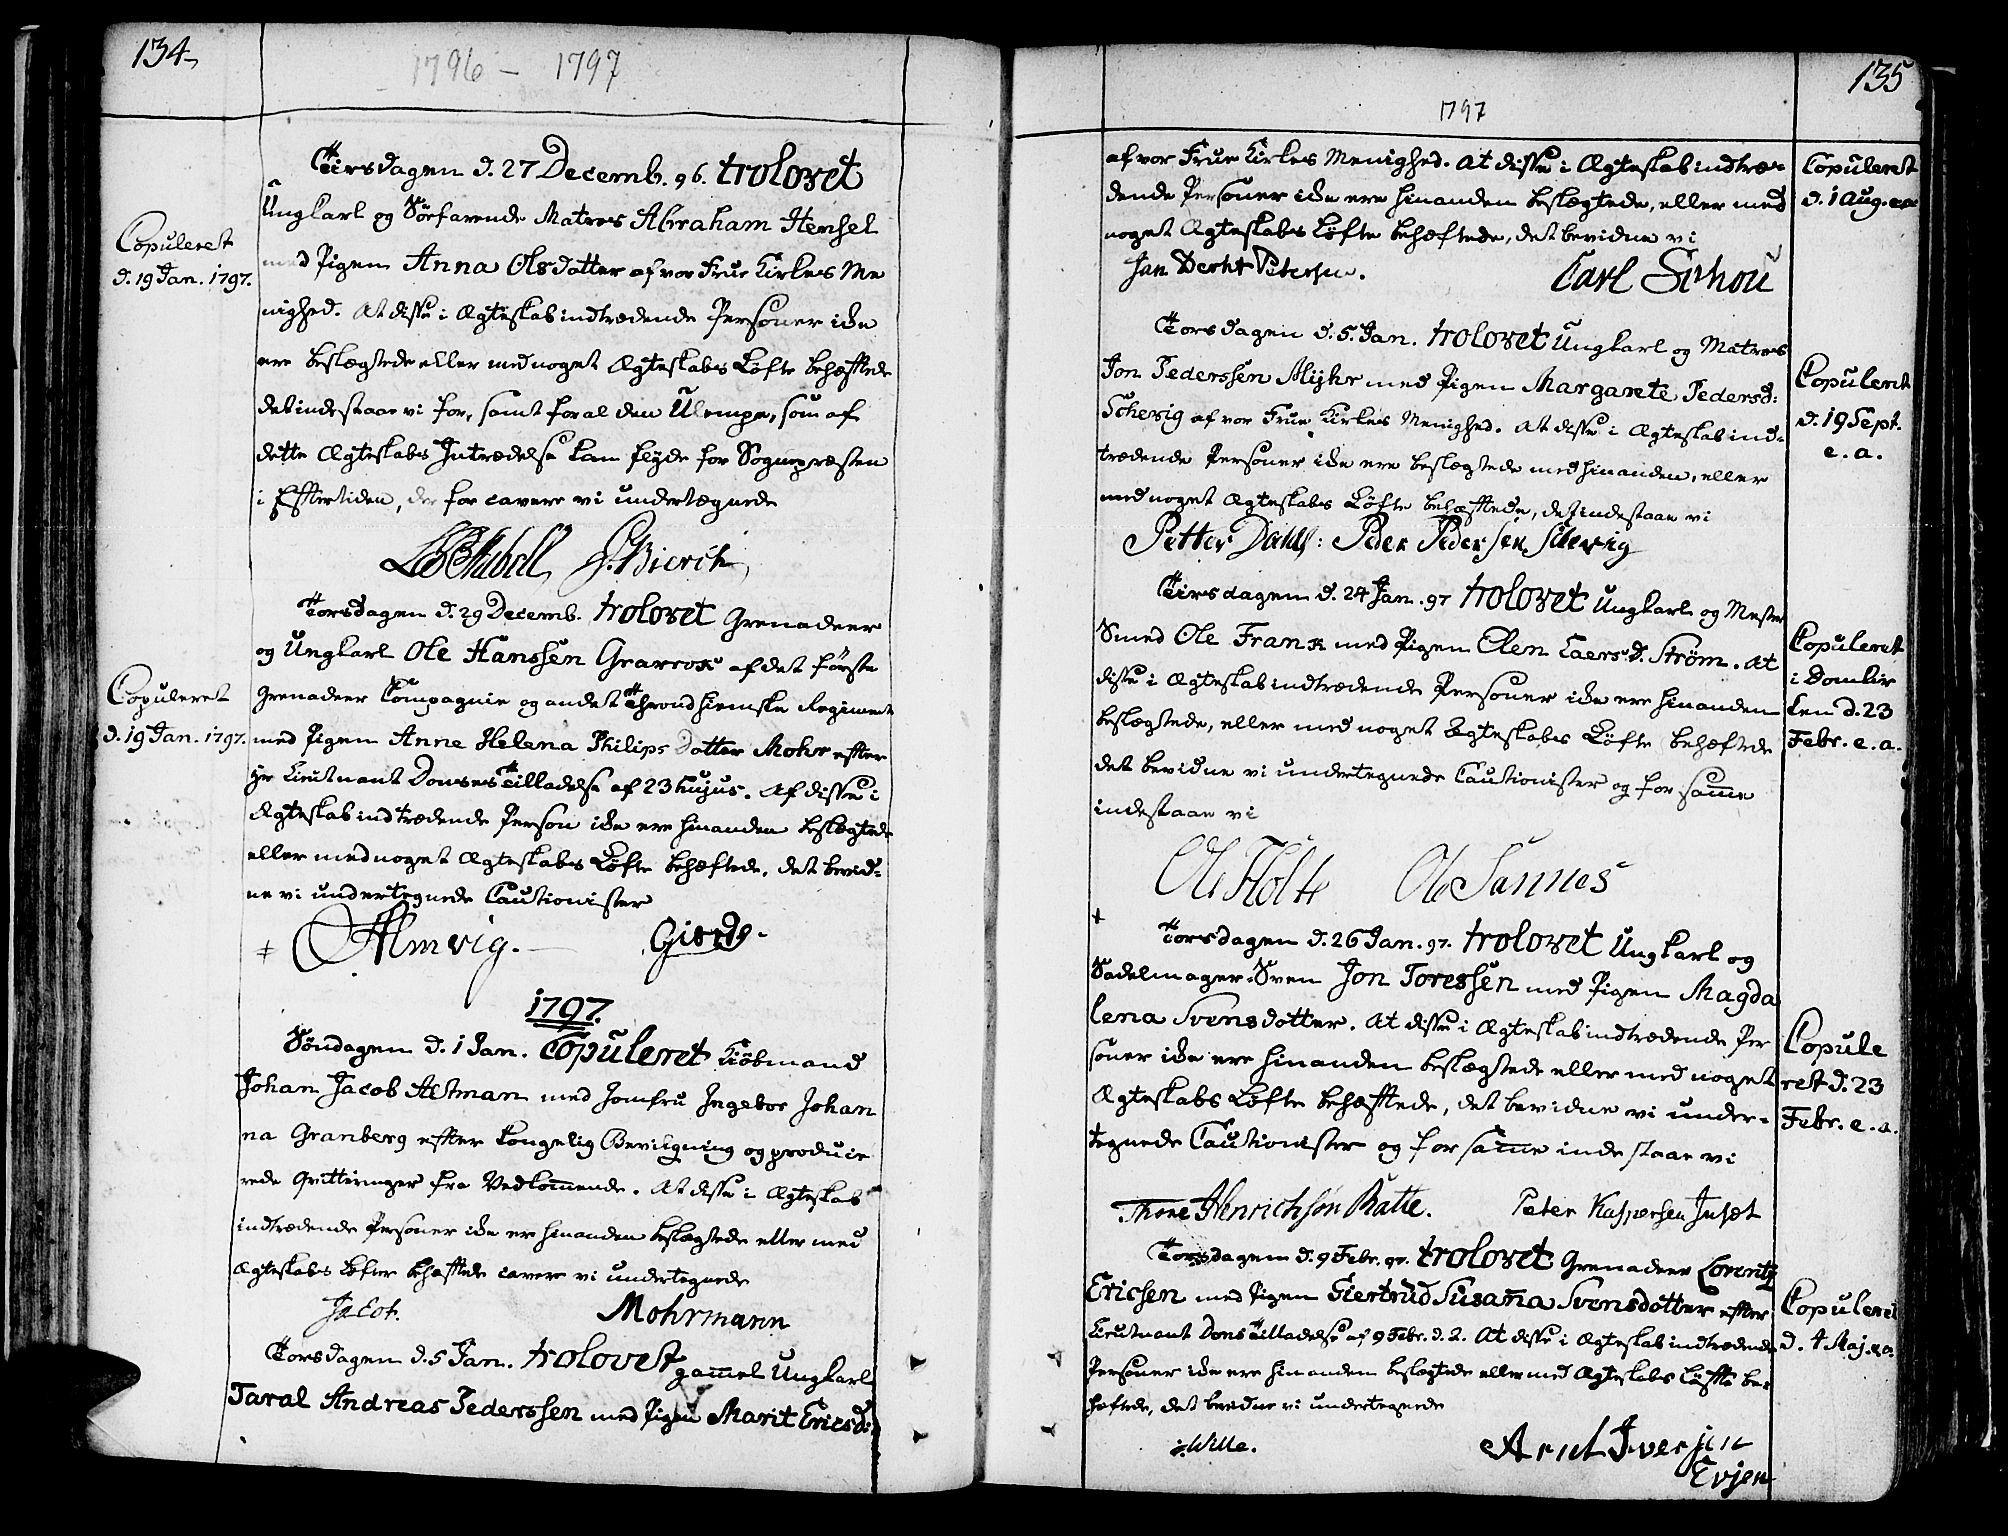 134
1796 - 1797
Tirsdagen d. 27 Decemb. 96. trolovet
Ungkarl og Söefarende Matros Abraham Hensel
med Pigen Anna Olsdatter af vor Frue Kirkes Me
nighed. At disse i Ægteskab indtrædende Personer ikke
ere beslægtede eller med noget Ægteskabs Løfte behæfftede
det indestaae vi for, samt for al den Ulempe, som af
dette Ægteskabs Intrædelse kan flyde for Sognepræsten
i Efftertiden, der for cavere vi undertegnede
Copuleret
d. 19 Jan. 1797.
Torsdagen d. 29 Decemb. trolovet Grenadeer
og Ungkarl Ole Hanssen Graverok af det første
Grenadeer Compagnie og andet Throndhiemske Regiment
med Pigen Anne Helena Philips Datter Mohr effter
Hr Lieutnant Donses Tilladelse af 23 hujus. At disse i
Ægteskab indtrædende Person ikke ere hinanden beslægtede
eller med noget Ægteskabs Løfte behæftede, det bevid-
ne vi undertegnede Cautionister
Almvig.
Copuleret
d. 19 Jan. 1797.
1797.
Søndagen d. 1 Jan. Copuleret Kiøbmand
Johan Jacob Altman med Jomfru Ingebor Johan
na Granberg effter Kongelig Bevilgning og producie
rede Qvitteringer fra Vedkommende. At disse i Ægteskab
indtrædende Personer ikke er hinanden beslægtede eller med
Ægteskabs Løfter behæfftede cavere vi undertegnede
Mohrmann
Torsdagen d. 5 Jan. trolovet gammel Ungkarl
Taral Andreas Pederssen med Pigen Marit Ericsd:
135
1797
af vor Frue Kirkes Menighed. At disse i Ægteskab indtræ-
dende Personer ikke ere hinanden beslægtede, eller med
noget Ægteskabs Løfte behæftede, det bevidne vi
Jan Derht Petersen. Carl Schou
Copuleret
d. 1 Aug. e.a.
Torsdagen d. 5. Jan. trolovet Ungkarl og Matros
Jon Pederssen Myhr med Pigen Margarete Pedersd:
Schevig af vor Frue Kirkes Menighed. At disse i Ægteskab ind-
trædende Personer ikke ere beslægtede med hinanden, eller
med noget Ægteskabs Løfte behæfftede, det indestaae vi
Petter Dahl: Peder Pedersen Schevig
Copuleret
d. 19 Sept.
e. a.
Tirsdagen d. 24 Jan. 97 trolovet Ungkarl og Mester
Smed Ole Frank med Pigen Elen Laers D. Strøm. At
disse i Ægteskab indtrædende Personer ikke ere hinanden
beslægtede, eller med noget Ægteskabs Løfte behæftede
det bevidne vi undertegnede Cautionister og for samme
indestaae vi
Ole Holte Ole Sannes
Copuleret
i Domkir
ken d. 23
Febr. e. a.
Torsdagen d. 26 Jan. 97. trolovet Ungkarl og
Sadelmager-Sven Jon Toressen med Pigen Magda
lena Svensdotter. At disse i Ægteskab indtrædende Per
soner ikke ere hinanden beslægtede eller med noget
Ægteskabs Løfte behæfftede, det bevidne vi under-
tegnede Cautionister og for samme inde staae vi
Thore Henrichsøn Ratte. Peter Kaspersen Jusæt
Copule
ret d. 23
Febr. e. a.
Torsdagen d. 9 Febr. 97. trolovet Grenadeer Lorentz
Ericsen med Pigen Giertrud Susanna Svensdotter effter
Lieutnant Dons Tilladelse af 9 Febr. d. 2. At disse i Ægteskab indtrædende
Personer ikke ere hinanden beslægtede eller med Ægteskabs Løffte be-
hæftede, det bevidne vi undertegnede
Wille. Arnt Iversen
Evjen
Copuleret
d. 4 Maj. e.a.